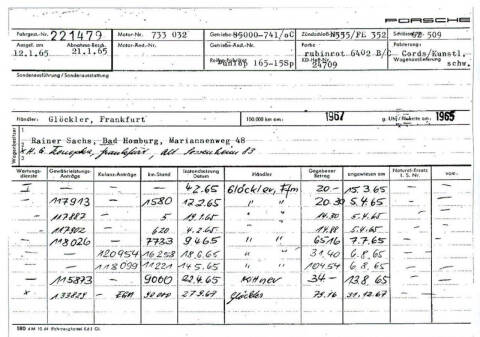 PORSCHE
Fahrgest.-Nr. 221479 Motor-Nr. 733 032 Getriebe 85000-741/aC Zündschloß N535/FE 352 Schlüssel 509
Ausgel. am 12.1.65 Abnahme-Bezch. 21.1.65 Motor-Änd.-Nr. Getriebe-Änd.-Nr. Farbe rubinrot 6402 B/C Polsterung Cords/Kunstl. schw.
Reifen-Fabrikat Dunlop 165-15Sp KD-Heft-Nr. 24709 Wagenauslieferung
Sonderausführung / Sonderausstattung
Händler: Glöckler, Frankfurt 100.000 km am: 1967 1965
Wagenbesitzer
1 Rainer Sachs, Bad Homburg, Mariannenweg 48
2 H. G. Frankfurt, Alt Sossenheim 83
3
Wartungsdienste Gewährleistungs-Anträge Kulanz-Anträge km-Stand Instandsetzung Datum Händler Gegebener Betrag angewiesen am Naturalersatz L.S. Nr. vom
I — — — 4.2.65 Glöckler, Ffm 20.- 15.3.65 —
— 117913 — 1580 12.2.65 " " 20.30 5.4.65 —
— 117887 — 5 19.1.65 " " 14.30 5.4.65 —
— 117902 — 620 4.2.65 " " 14.88 5.4.65 —
— 118026 — 7733 9.4.65 " " 65.16 7.7.65 —
— — 120954 16258 18.6.65 " " 31.40 6.8.65 —
— — 118099 11221 14.5.65 " " 104.54 6.8.65 —
— 115873 — 9000 22.4.65 Kottner 34.- 13.8.65 —
x 133829 — 90000 27.9.67 Glöckler 75.16 31.12.67 —